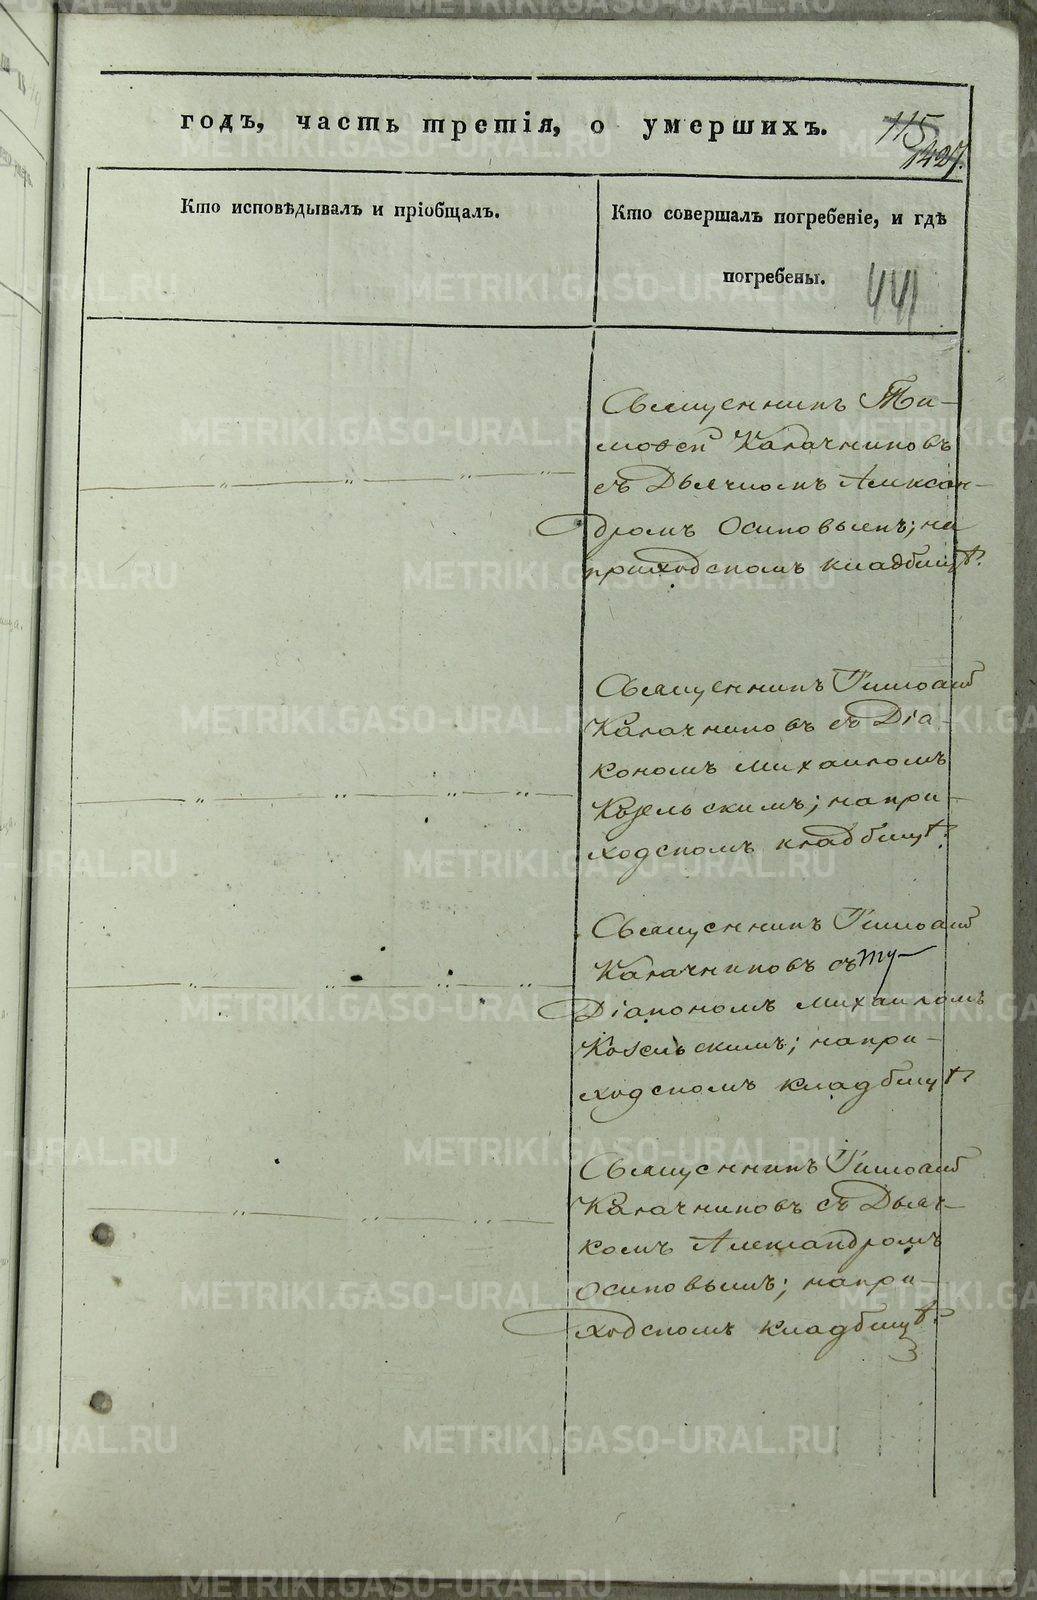 годъ, часть третія, о умершихъ.
115
427.
Кто исповѣдывалъ и пріобщалъ.
Кто совершалъ погребеніе, и гдѣ
погребены.
441
Священникъ Ти-
моѳей Калачниковъ
съ Дьячкомъ Алексан-
дромъ Осиповымъ; на
приходскомъ кладбищѣ.
Священникъ Тимоѳей
Калачниковъ съ Діа-
кономъ Михаиломъ
Козельскимъ; на при-
ходскомъ кладбищѣ.
Священникъ Тимоѳей
Калачниковъ съ
Діакономъ Михаиломъ
Козельскимъ; на при-
ходскомъ кладбищѣ.
Священникъ Тимоѳей
Калачниковъ съ Дьяч-
комъ Александромъ
Осиповымъ; на при-
ходскомъ кладбищѣ.
METRIKI.GASO-URAL.RU